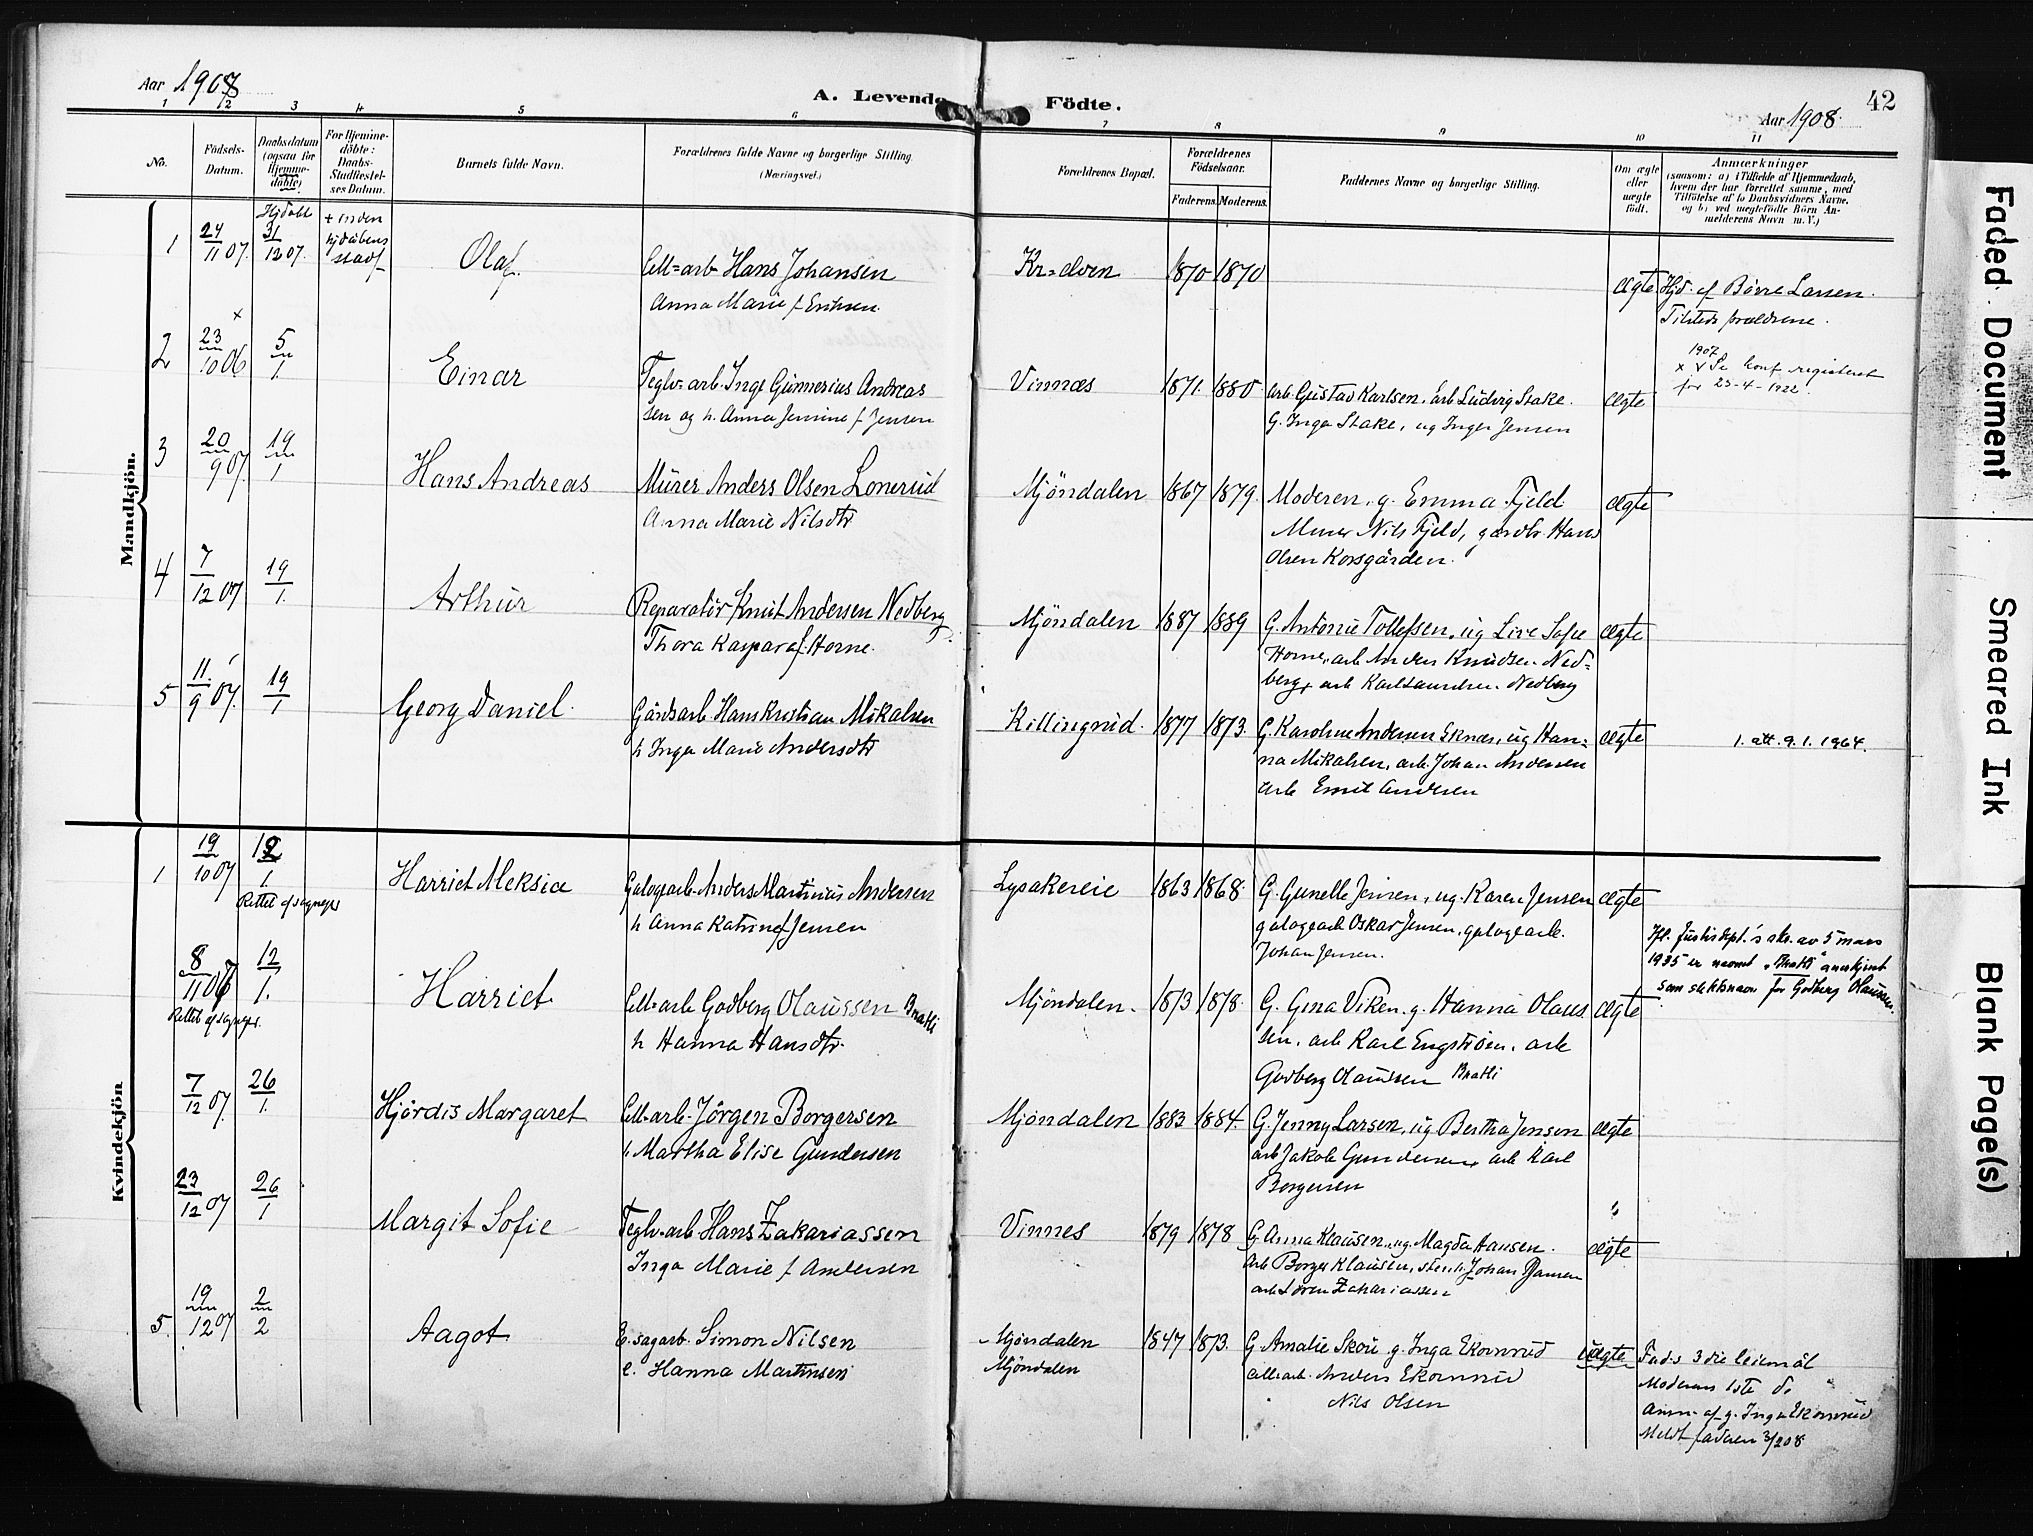 Aar 1908
A. Levende Födte.
42
Aar 1908.
1 2 3 4 5 6 7 8 9 10 11
No.
Födsels-
Datum.
Daabsdatum
(ogsaa for
Hjemme-
döbte)
For Hjemme-
döbte:
Daabs-
Stadfæstel-
ses Datum.
Barnets fulde Navn.
Forældrenes fulde Navne og borgerlige Stilling
(Næringsvei.)
Forældrenes Bopæl.
Forældrenes
Födselsaar.
Faderens. Moderens.
Faddernes Navne og borgerlige Stilling.
Om ægte
eller
uægte
födt.
Anmærkninger
(saasom: a) i Tilfælde af Hjemmedaab,
hvem der har forrettet samme, med
Tilföielse af to Daabsvidners Navne.
og b) ved uægtefödte Börn An-
melderens Navn m. V.)
Mandkjön.
1
24/11 07.
Hjdøbt
31/12 07.
+ inden
hjdåbens
stadf
Olaf.
Cell=arb Hans Johansen
Anna Marie f. Eriksen
Kr=elven
1870 1870
Ægte
Hjd. af Børre Larsen.
Tilsteds forældrene.
2
23/10 06
x
5/1
Einar
Teglv. arb. Inge Gunnerius Andreas
sen og h. Anna Jennine f. Jensen
Vinnæs
1871. 1880.
arb. Gustav Karlsen, arb Ludvig Stake.
G. Inga Stake, ug Inger Jensen
Ægte
1907
Konf registeret
for 23-4-1922.
3
20/9 07.
19/1
Hans Andreas
Murer Anders Olsen Lonerud
Anna Marie Nilsdtr
Mjöndalen
1867 1879.
Moderen, g. Emma Fjeld
Murer Nils Fjeld, gardbr. Hans
Olsen Korsgården.
Ægte
4
7/12 07
19/1.
Arthur
Reparatör Knut Andersen Nedberg
Thora Kaspara f. Horne.
Mjöndalen
1887 1889
G. Antonie Tollefsen, ug Live Sofie
Horne, arb Anders Knudsen Ned-
berg, arb Karl Nedberg
Ægte
5
11/9 07.
19/1
Georg Daniel.
Gårdsarb Hans Kristian Mikalsen
h Inga Marie Andersdtr
Killingrud.
1877 1873.
G. Karoline Andersen Eknæs, ug Han-
na Mikalsen, arb. Johan Andersen
arb Emil Andersen
Ægte
1. att. 9.1.1964.
Kvindekjön
1
19/10 07
12/1
Rettet af sogneprs
Harriet Aleksia
Galogearb. Anders Martinius Andersen
h Anna Katrine f Jensen
Lysakereie
1863 1868.
G. Gunelle Jensen, ug. Karen Jensen
galogearb Oskar Jensen, galogearb.
Johan Jensen.
Ægte
8/11 07
Rettet af sogneprs.
12/1.
Harriet
Cell=arb Godberg Olaussen Bratli
h Hanna Hansdtr.
Mjøndalen.
1873 1878.
G. Gina Viken, g. Hanna Olaus
sen, arb Karl Engström, arb
Godberg Olaussen Bratli
Ægte
Ifl. Justisdept.'s skr. av 5 mars
1935 er navnet "Bratli" anerkjent
som slektsnavn for Godberg Olaussen.
7/12 07.
26/1.
Hjördis Margaret
Cell-arb. Jörgen Borgersen
h. Martha Elise Gundersen
Mjöndalen
1883 1884.
G. Jenny Larsen, ug Bertha Jensen
arb Jakob Gundersen, arb Karl
Borgersen
Ægte
23/12 07
26/1
Margit Sofie
Teglv-arb. Hans Zakariassen
Inga Marie f Andersen
Vinnes
1879 1878
G Anna Klausen, ug. Magda Hansen.
Arb Borger Klausen, Johan Hansen
arb Sören Zahariassen
Ægte
5.
19/12 07
2/2
Aagot
E. sagarb. Simon Nilsen
e. Hanna Martinsen
Mjöndalen
Mjöndalen
1847 1873.
G. Amalie Skou g. Inga Ekornrud
cellarb. Anders Ekornrud
Nils Olsen
Uægte
Fad.s 3die leiermål
Moderens 1ste do
Anm. af g. Inga Ekornrud
Meldt faderen 3/2 08
Faded Document
Smeared Ink
Blank Page(s)